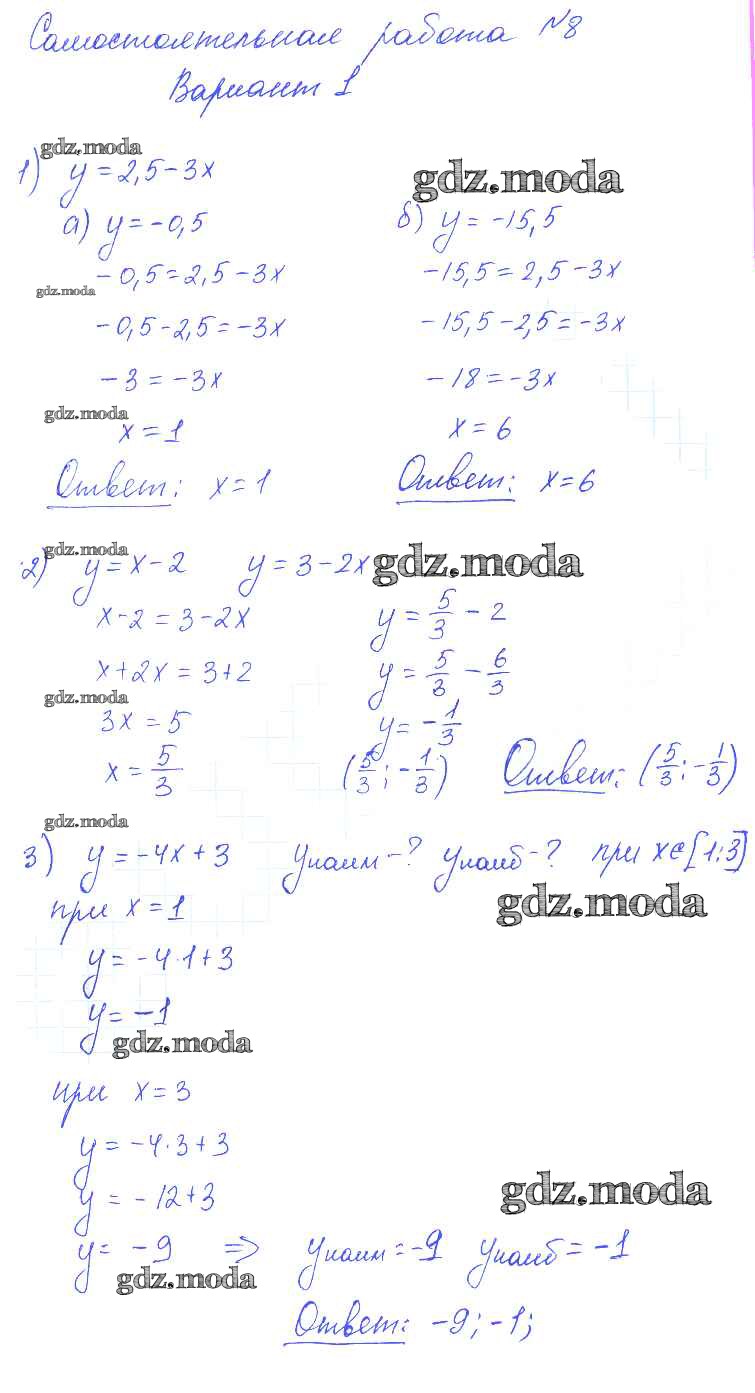 Самостоятельная работа №8
Вариант 1
gdz.moda
1) y = 2,5 - 3x
gdz.moda
а) y = -0,5
б) y = -15,5
-0,5 = 2,5 - 3x
-15,5 = 2,5 - 3x
gdz.moda
-0,5 - 2,5 = -3x
-15,5 - 2,5 = -3x
-3 = -3x
-18 = -3x
gdz.moda
x = 1
x = 6
Ответ: x = 1
Ответ: x = 6
gdz.moda
2) y = x - 2 y = 3 - 2x
gdz.moda
x - 2 = 3 - 2x
y = 5/3 - 2
x + 2x = 3 + 2
y = 5/3 - 6/3
gdz.moda
3x = 5
y = -1/3
x = 5/3
(5/3; -1/3)
Ответ: (5/3; -1/3)
gdz.moda
3) y = -4x + 3 yнаим - ? yнаиб - ? при x∈[1;3]
gdz.moda
при x = 1
y = -4·1 + 3
y = -1
gdz.moda
при x = 3
y = -4·3 + 3
y = -12 + 3
gdz.moda
y = -9 => yнаим = -9 yнаиб = -1
gdz.moda
Ответ: -9; -1;